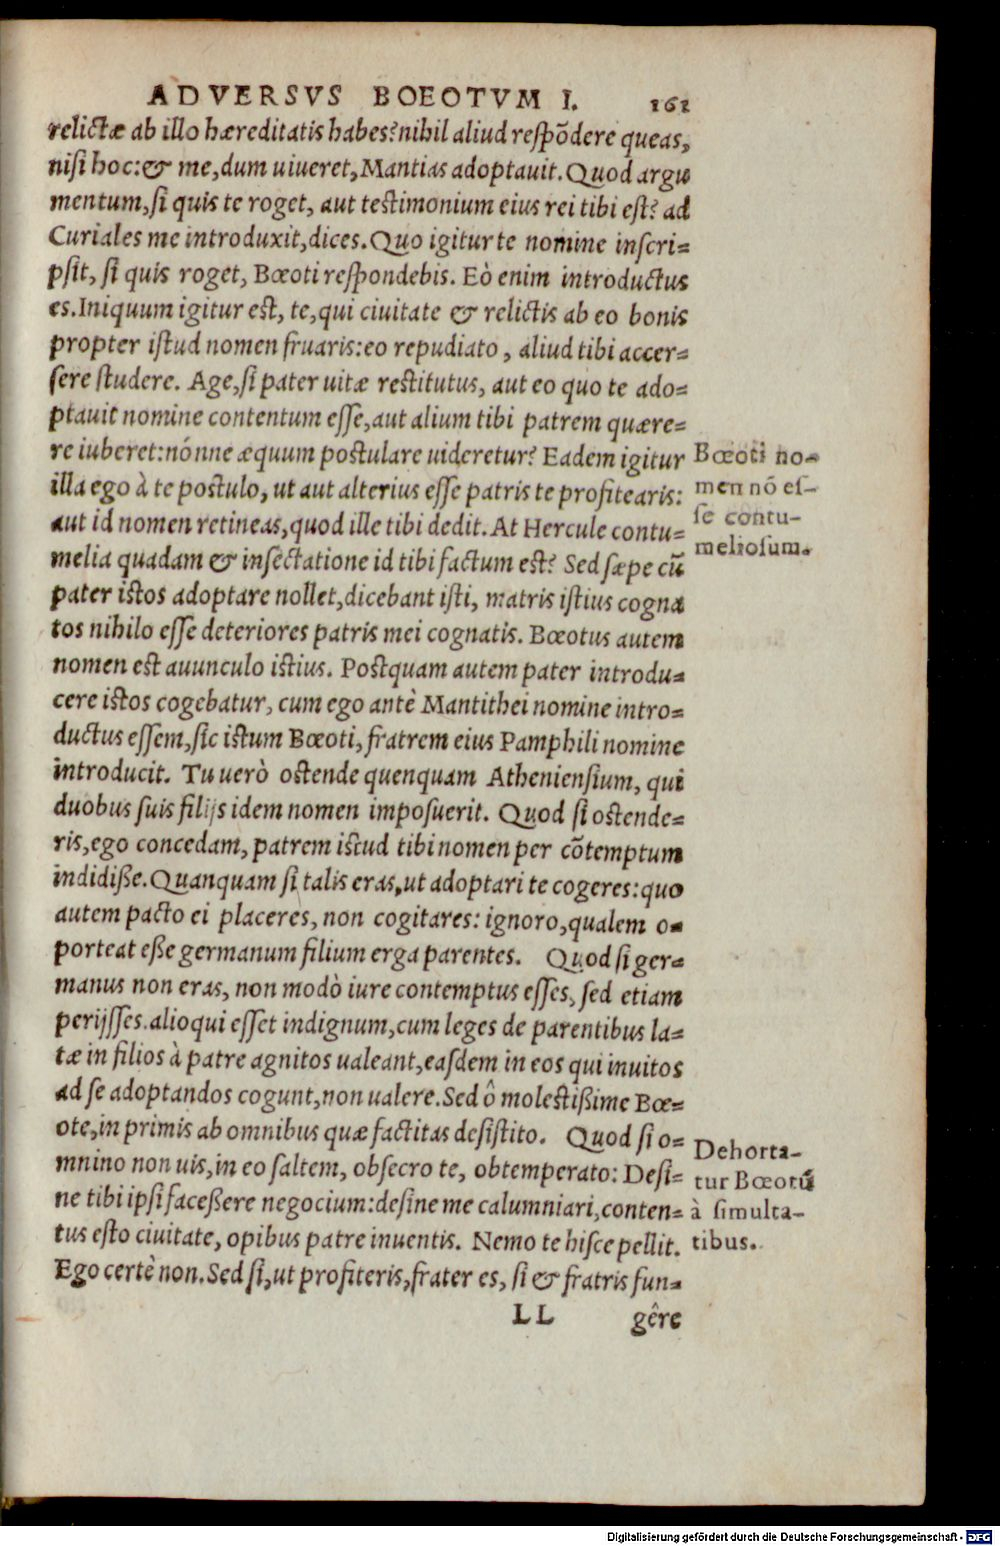 ADVERSVS BOEOTVM I. 161
relictæ ab illo hæreditatis habes? nihil aliud respõdere queas,
nisi hoc: & me, dum uiueret, Mantias adoptauit. Quod argu
mentum, si quis te roget, aut testimonium eius rei tibi est? ad
Curiales me introduxit, dices. Quo igitur te nomine inscri=
psit, si quis roget, Bœoti respondebis. Eò enim introductus
es. Iniquum igitur est, te, qui ciuitate & relictis ab eo bonis
propter istud nomen fruaris: eo repudiato, aliud tibi accer=
sere studere. Age, si pater uitæ restitutus, aut eo quo te ado=
ptauit nomine contentum esse, aut alium tibi patrem quære=
re iuberet: nónne æquum postulare uideretur? Eadem igitur
illa ego à te postulo, ut aut alterius esse patris te profitearis:
aut id nomen retineas, quod ille tibi dedit. At Hercule contu=
melia quadam & insectatione id tibi factum est? Sed sæpe cũ
pater istos adoptare nollet, dicebant isti, matris istius cogna
tos nihilo esse deteriores patris mei cognatis. Bœotus autem
nomen est auunculo istius. Postquam autem pater introdu=
cere istos cogebatur, cum ego antè Mantithei nomine intro=
ductus essem, sic istum Bœoti, fratrem eius Pamphili nomine
introducit. Tu uerò ostende quenquam Atheniensium, qui
duobus suis filijs idem nomen imposuerit. Quod si ostende=
ris, ego concedam, patrem istud tibi nomen per cõtemptum
indidiße. Quanquam si talis eras, ut adoptari te cogeres: quo
autem pacto ei placeres, non cogitares: ignoro, qualem o=
porteat eße germanum filium erga parentes. Quod si ger=
manus non eras, non modò iure contemptus esses, sed etiam
perijsses. alioqui esset indignum, cum leges de parentibus la=
tæ in filios à patre agnitos ualeant, easdem in eos qui inuitos
ad se adoptandos cogunt, non ualere. Sed ô molestißime Bœ=
ote, in primis ab omnibus quæ factitas desistito. Quod si o=
mnino non uis, in eo saltem, obsecro te, obtemperato: Desi=
ne tibi ipsi faceßere negocium: desine me calumniari, conten=
tus esto ciuitate, opibus patre inuentis. Nemo te hisce pellit.
Ego certè non. Sed si, ut profiteris, frater es, si & fratris fun=
LL gêre
Bœoti no-
men nõ es-
se contu-
meliosum.
Dehorta-
tur Bœotũ
à simulta-
tibus.
Digitalisierung gefördert durch die Deutsche Forschungsgemeinschaft - DFG